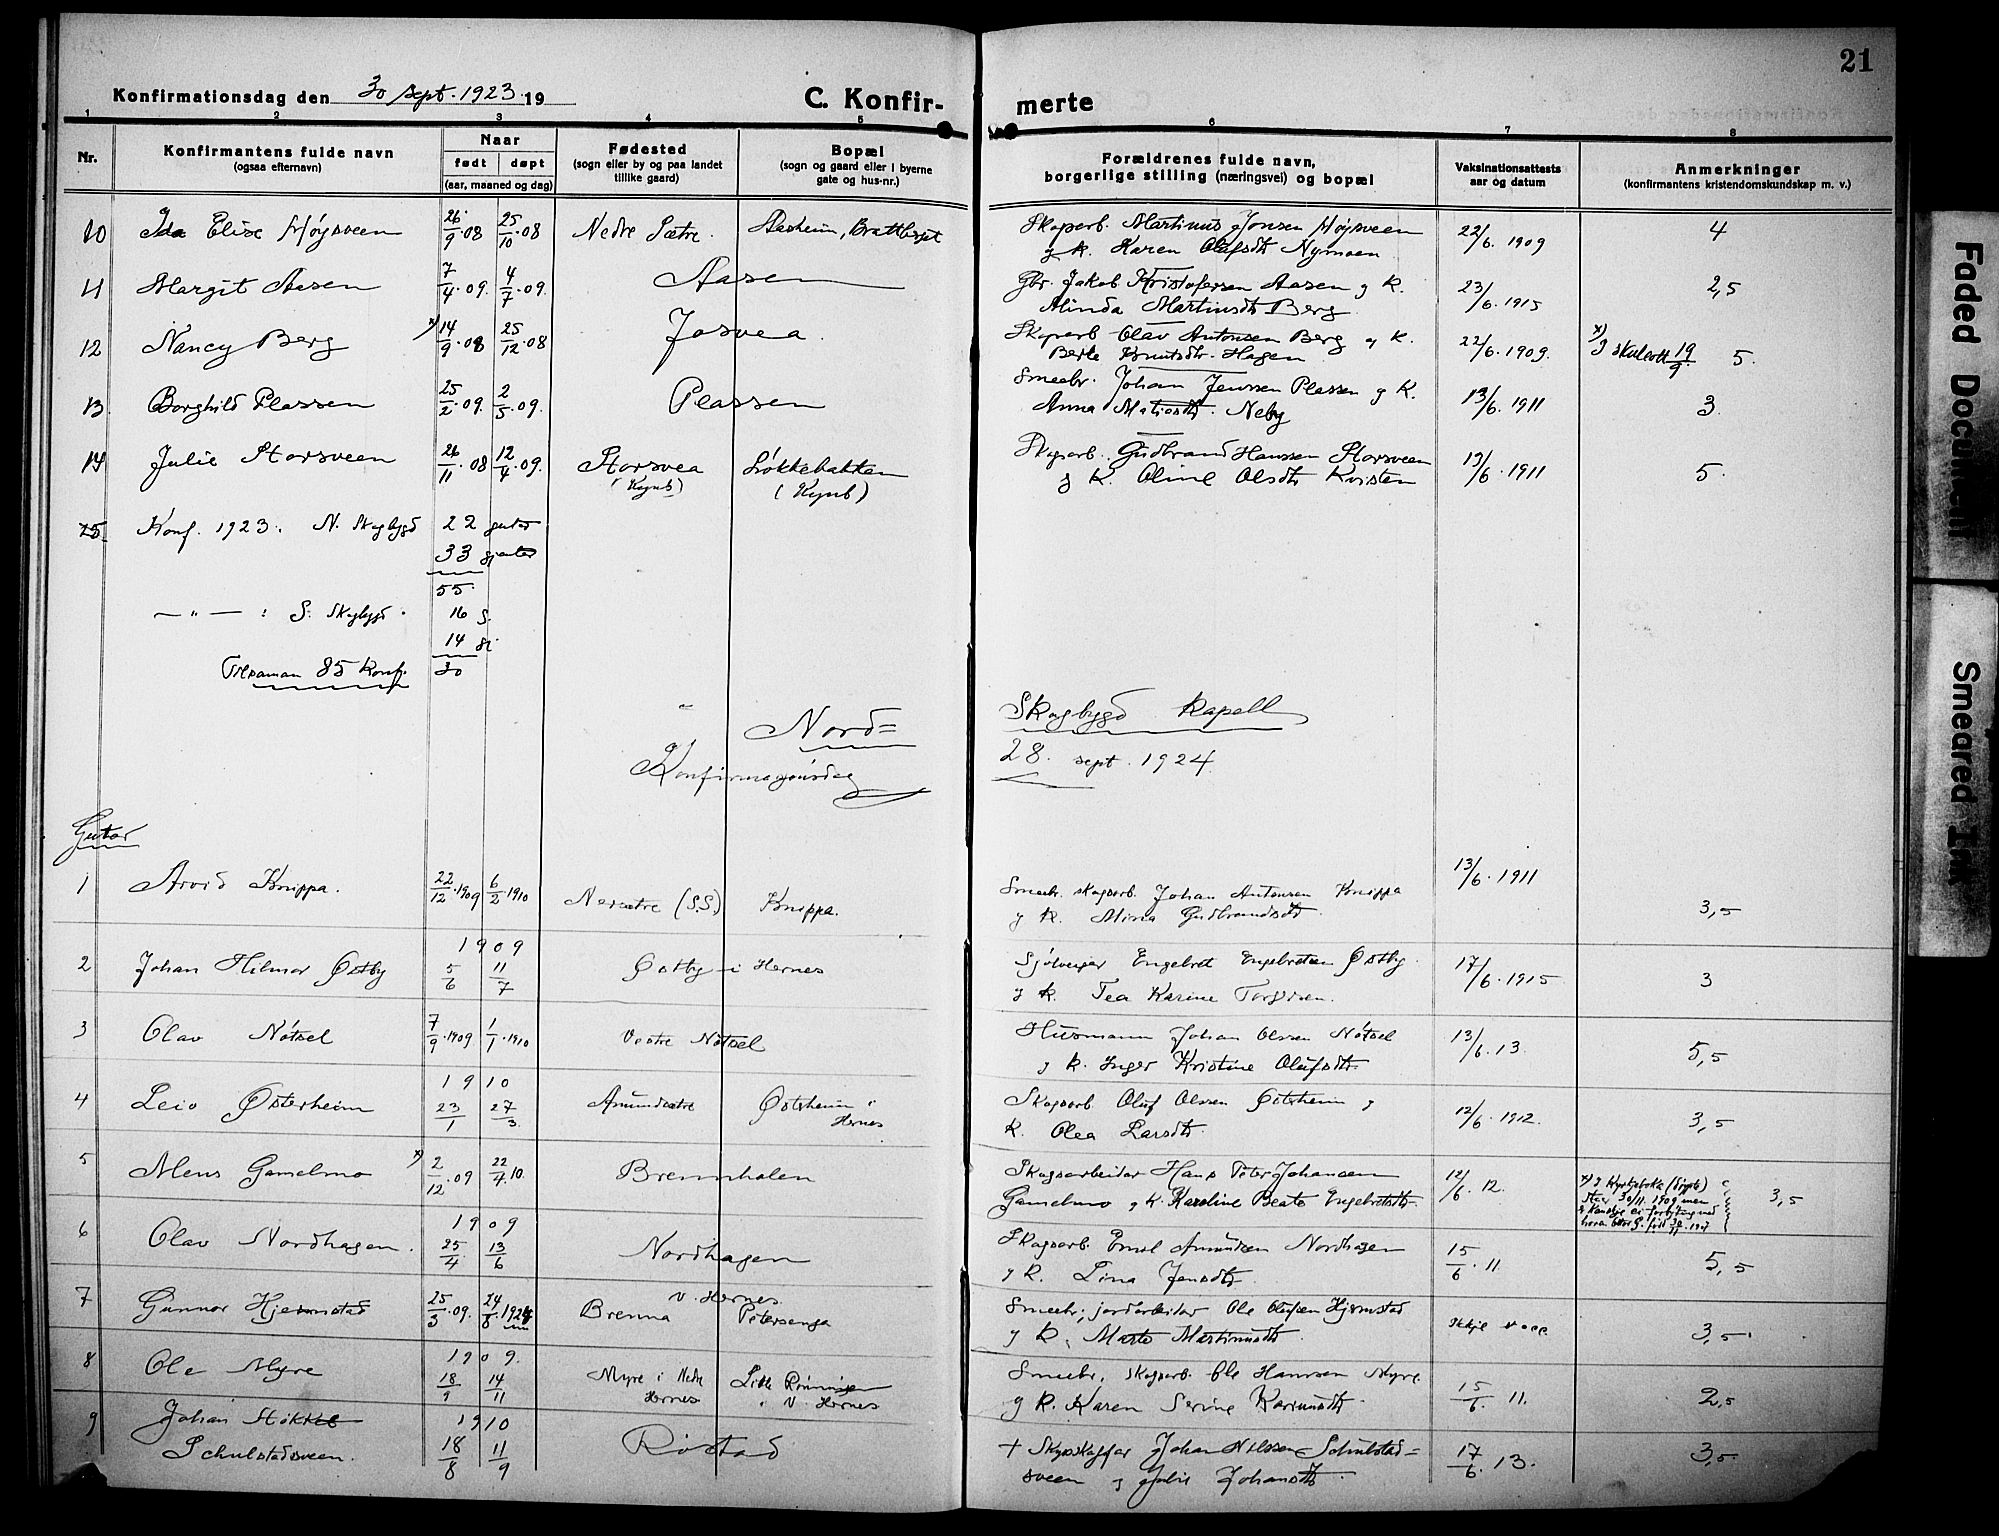 21
Konfirmationsdag den 30 sept. 1923. 19
C. Konfir-
merte
1 2 3 4 5 6 7 8
Nr.
Konfirmantens fulde navn
(ogsaa efternavn)
Naar
født døpt
(aar, maaned og dag)
Fødested
(sogn eller by og paa landet
tillike gaard)
Bopæl
(sogn og gaard eller i byerne
gate og hus-nr.)
Forældrenes fulde navn,
borgerlige stilling (næringsvei) og bopæl
Vaksinationsattests
aar og datum
Anmerkninger
(konfirmantens kristendomskundskap m. v.)
10 Ida Elise Høysveen 26/9·08 25/10·08 Nedre Sætre. Aasheim, Skogsarb. Martinus Jonsen Høysveen 22/6. 1909 4
g k. Karen Olafsdtr Nymoen
11 Margit Aasen 7/4·09. 4/7·09. Aasen Gbr. Jakob Kristofersen Aasen g k. 23/6. 1915 2,5
Alinda Martinsdtr Berg
12 Nancy Berg x) 14/9·08 25/12·08 Josvea. Olav Antonsen Berg g k. 22/6. 1909. x)
Berte Knutsdtr. Hagen 19/9. 5.
13 Borghild Plassen 25/2·09. 2/5·09. Plassen Smeebr. Johan Jenssen Plassen g k. 13/6. 1911 3.
Anna Matiesdtr. Neby
14 Julie Storsveen 26/11·08 12/4·09. Storsvea Løkkebakken Gudbrand Hanssen Storsveen 13/6. 1911 5.
(Kynb) (Kynb) g k. Oline Olsdtr Kvisten
15 Konf. 1923. N. Skogbygd 22 gutar
33 gjentor
55.
— " — : S. Skogbygd. 16 g.
14 gj
Tilsaman 85 konf. 30
Nord= Skogbygd Kapell
Konfirmasjonsdag 28. sept. 1924.
Gutar
1 Arvid Knippa. 22/12·1909 6/2·1910 Nesætre (S.S.) Knippa. Smeebr. skogsarb. Johan Antonsen Knippa 13/6. 1911 3,5
g k. Mina Gudbrandsdtr.
1909
2 Johan Hilmar Østby 5/6 11/7 Østby i Hernes Sjølveigar Engebret Engebretsen Østby. 17/6. 1915 3
g k. Tea Karine
3 Olav Nøtsel 7/9·1909. 1/1·1910 Vestre Nøtsel Husmann Johan Olssen Nøtsel 13/6. 13. 5,5
g k. Inger Kristine Olufsdtr.
1910
4 Leiv Østerheim 23/1 27/3 Amundsætre Østerheim i Skogsarb. Oluf Olssen Østerheim g 12/6. 1912. 3,5
Hernes k. Olea Larsdtr.
5 Mens Gamelmo x) 2/12·09 22/4·10. Brennholen Skogsarbeidar Hans Peter Johansen 12/6. 12. 3,5
Gamelmo g k. Karoline Beate Engebretsdtr.
x) I Kyrkjeboka (døypte)
staar 30/11. 1909 men
1909
6 Olav Nordhagen. 25/4 13/6 Nordhagen Skogsarb. Emil Amundsen Nordhagen 15/6. 11. 5,5
g k. Lina Jensdtr.
V. Hernes
7 Gunnar Hjelmstad 25/3·09. 24/8·1924 Brenna Petersenga Smeebr., jordarbeidar Ole Olufsen Hjelmstad Ikkje vacc. 3,5
g k. Marte Martinusdtr
1909.
8 Ole Myre 18/9 14/11 Myre i Nedre Litle Rønningen Smeebr., skogsarb. Ole Hanssen Myre. 15/6. 11. 2,5
Hernes i V. Hernes g k. Karen Serine
1910
9 Johan
Schulstadsveen. 18/8 11/9 Røstad + Skysskaffar Johan Nilssen Schulstad= 17/6. 13. 3,5.
sveen g Julie Johansdtr.
Faded Document
Smeared Ink